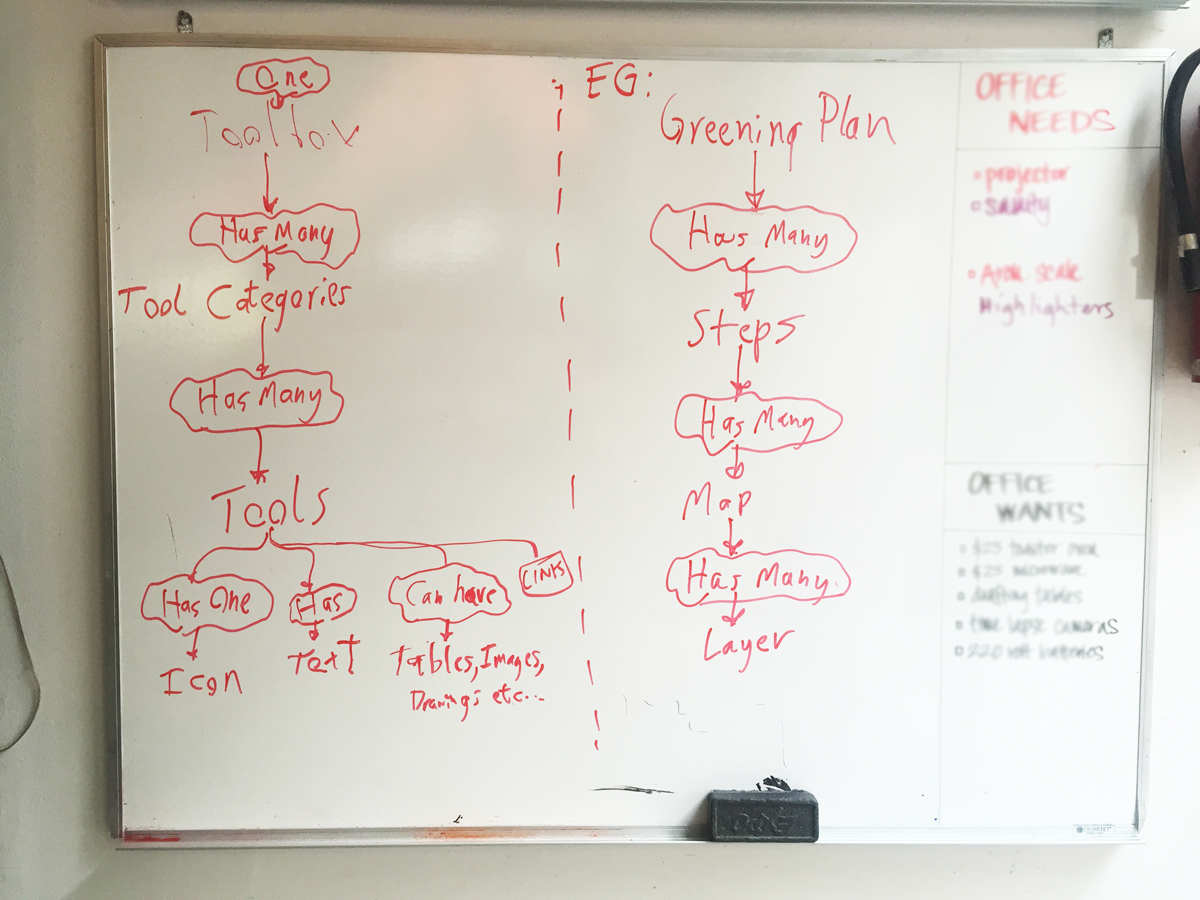 One
Toolbox
Has Many
Tool Categories
Has Many
Tools
Has One
Has
Can have
LINKS
Icon
Text
Tables, Images,
Drawings etc...
EG:
Greening Plan
Has Many
Steps
Has Many
Map
Has Many
Layer
OFFICE
NEEDS
projector
sanity
Arch. scale
Highlighters
OFFICE
WANTS
$25 toaster oven
$25 microwave
drafting tables
time lapse cameras
220 volt batteries
EXPO
QUARTET